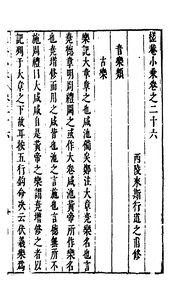 槎菴小乘卷之二十六
西陵來斯行道之甫修
音樂類
古樂
樂記大章章之也咸池備矣鄭注大章堯樂名也言
堯德章明周禮闕之或作大卷咸池黃帝所作樂名
也堯增修而用之咸皆也池之言施也言德無所不
施周禮曰大咸咸自是黃帝之樂謂堯增修之者以
記列于大章之下故耳按五行鈎命决云伏羲樂為